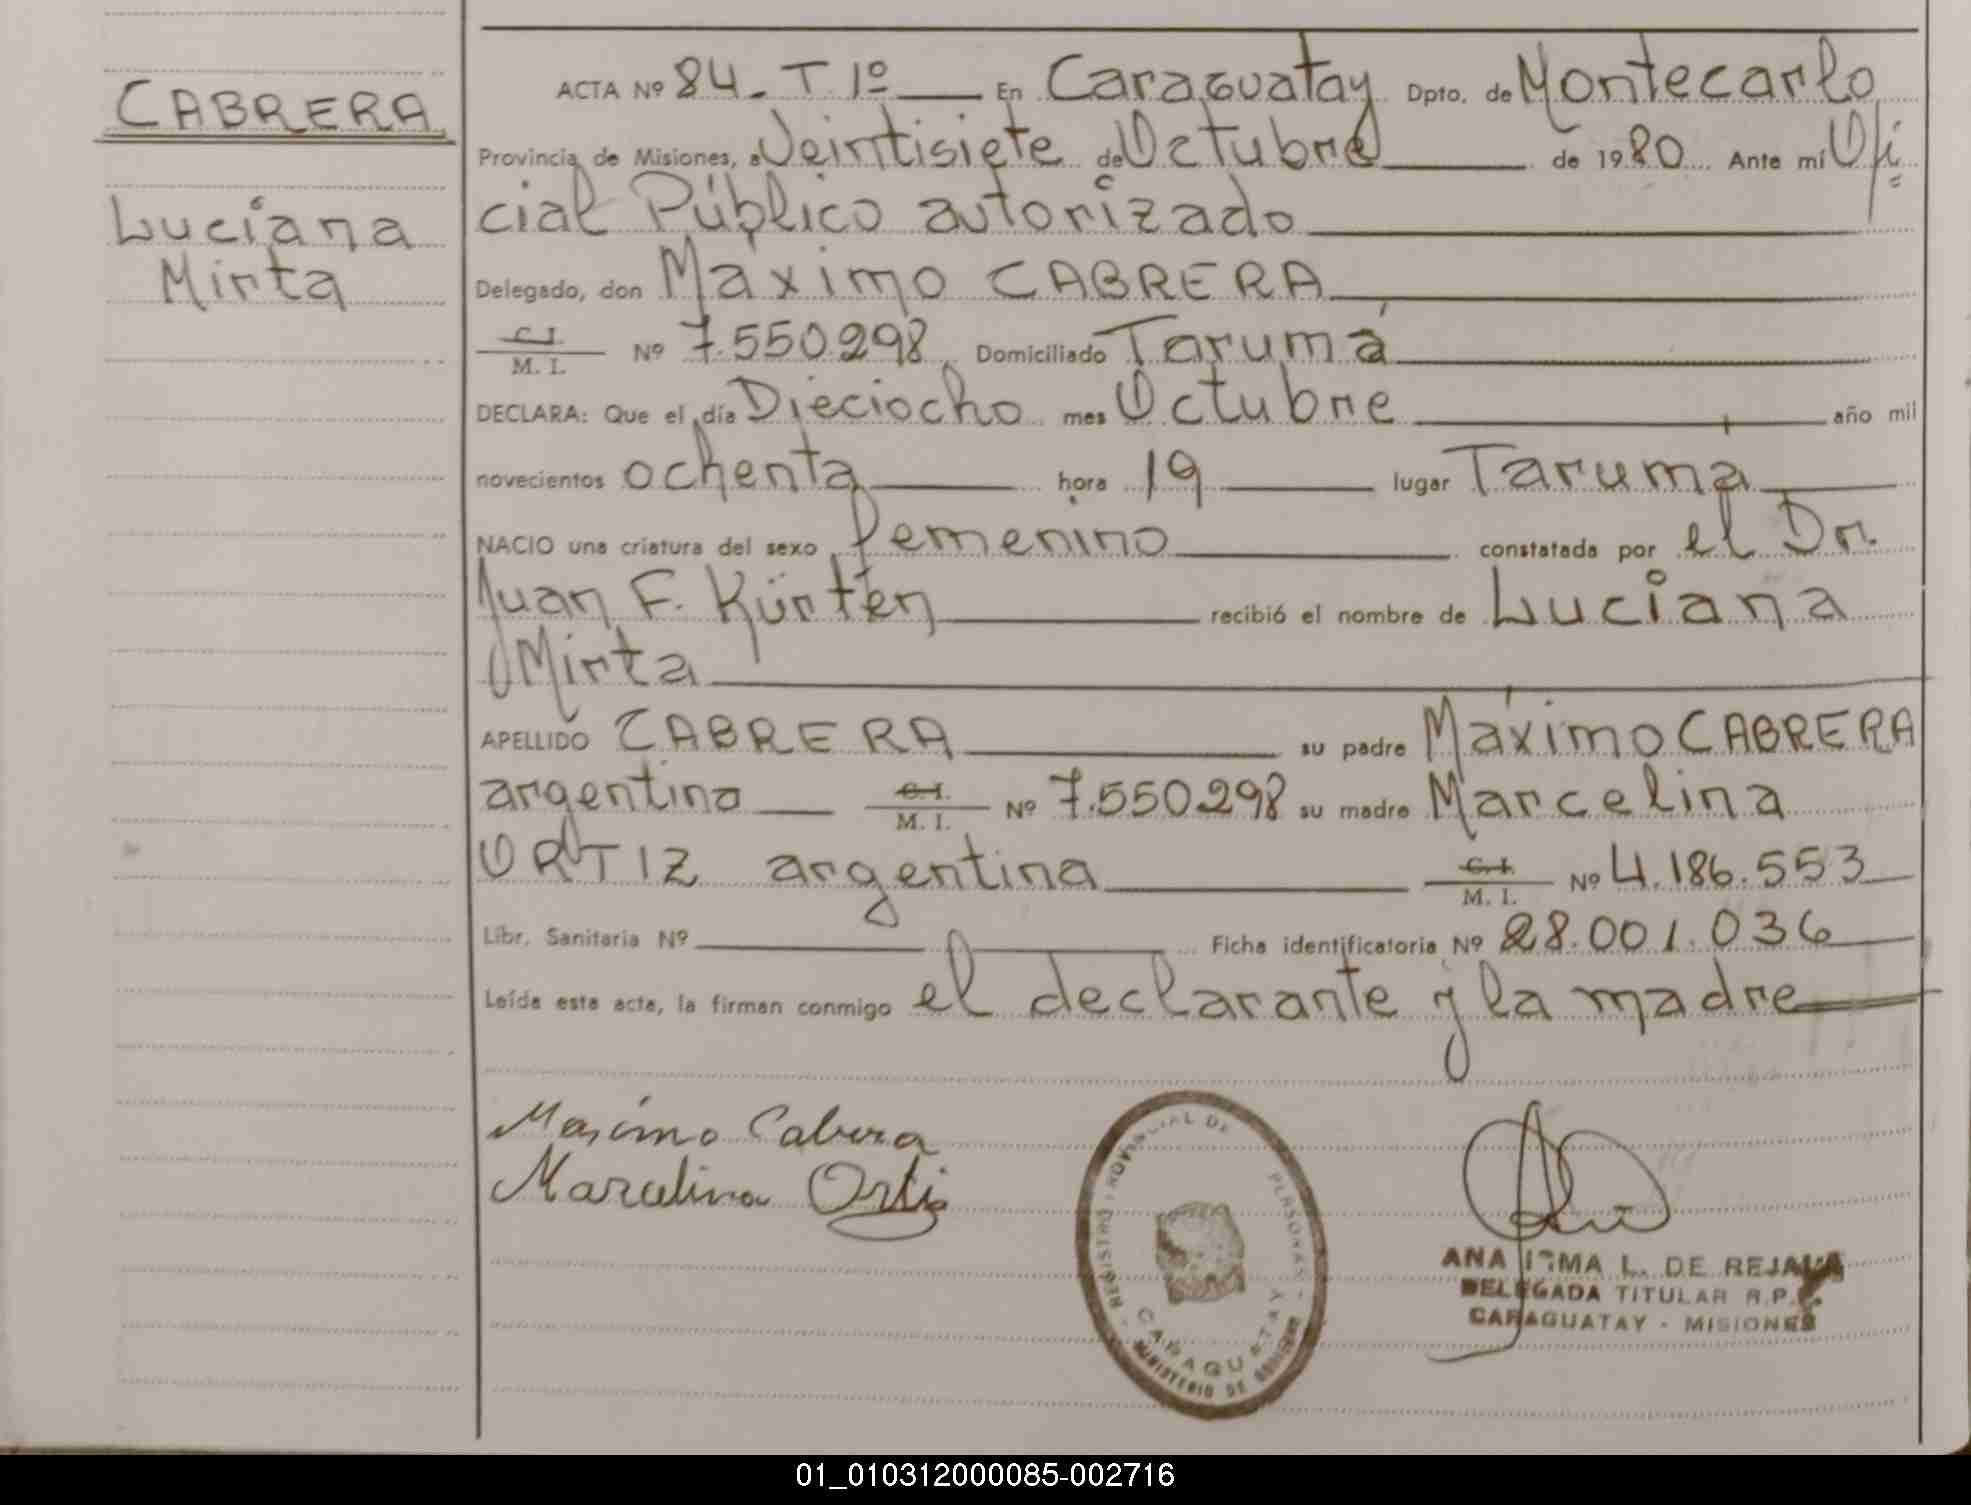 CABRERA
Luciana
Mirta
ACTA Nº 84. T 1º En Caraguatay Dpto. de Montecarlo
Provincia de Misiones, a Veintisiete de Octubre de 1980 Ante mí Ofi
cial Público autorizado
Delegado, don Máximo CABRERA
C.I.
M. I. Nº 7.550.298 Domiciliado Tarumá
DECLARA: Que el día Dieciocho mes Octubre año mil
novecientos ochenta hora 19 lugar Tarumá
NACIO una criatura del sexo femenino constatada por el Dr.
Juan F. Kürten recibió el nombre de Luciana
Mirta
APELLIDO CABRERA su padre Máximo CABRERA
argentino C.I. M. I. Nº 7.550.298 su madre Marcelina
ORTIZ argentina C.I. M. I. Nº 4.186.553
Libr. Sanitaria Nº Ficha identificatoria Nº 28.001.036
Leída esta acta, la firman conmigo el declarante y la madre
Masimo Cabrera
Marcelina Ortis
REGISTRO PROVINCIAL DE PERSONAS
CARAGUATAY
MINISTERIO DE GOBIERNO
ANA IRMA L. DE REJALA
DELEGADA TITULAR R.P.
CARAGUATAY - MISIONES
01_010312000085-002716